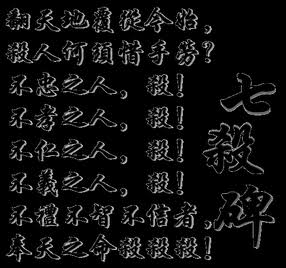 翻天地覆從今始,
殺人何須惜手勞?
不忠之人,殺!
不孝之人,殺!
不仁之人,殺!
不義之人,殺!
不禮不智不信者,
奉天之命殺殺殺!
七殺碑